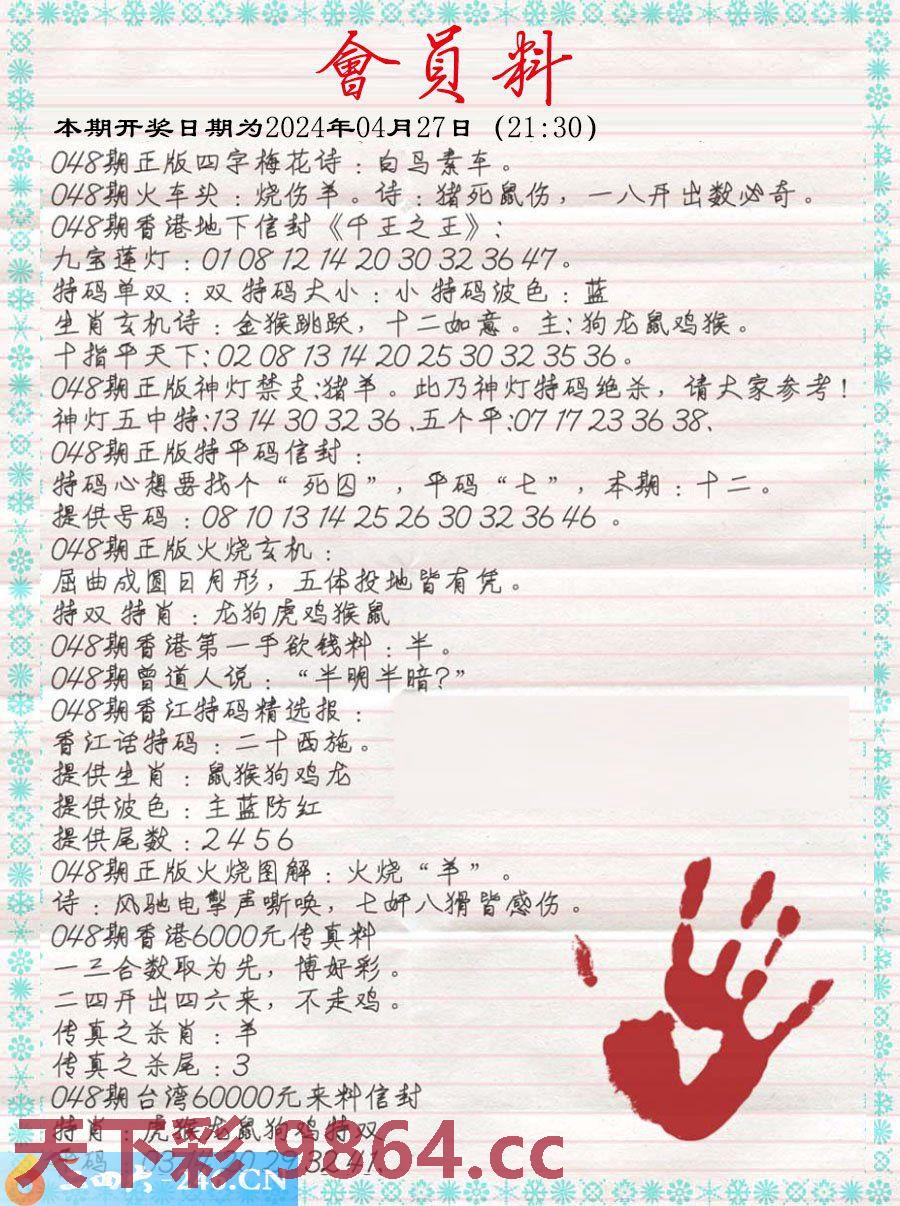 會員料
本期开奖日期为2024年04月27日（21:30）
048期正版四字梅花诗：白马素车。
048期火车头：烧伤羊。诗：猪死鼠伤，一八开出数必奇。
048期香港地下信封《千王之王》：
九宝莲灯：01 08 12 14 20 30 32 36 47。
特码单双：双 特码大小：小 特码波色：蓝
生肖玄机诗：金猴跳跃，十二如意。主：狗龙鼠鸡猴。
十指平天下：02 08 13 14 20 25 30 32 35 36。
048期正版神灯禁支：猪羊。此乃神灯特码绝杀，请大家参考！
神灯五中特：13 14 30 32 36、五个平：07 17 23 36 38、
048期正版特平码信封：
特码心想要找个“死囚”，平码“七”，本期：十二。
提供号码：08 10 13 14 25 26 30 32 36 46 。
048期正版火烧玄机：
屈曲成圆日月形，五体投地皆有凭。
特双 特肖：龙狗虎鸡猴鼠
048期香港第一手欲钱料：半。
048期曾道人说：“半明半暗？”
048期香江特码精选报：
香江话特码：二十西施。
提供生肖：鼠猴狗鸡龙
提供波色：主蓝防红
提供尾数：2 4 5 6
048期正版火烧图解：火烧“羊”。
诗：风驰电掣声嘶唤，七奸八猾皆感伤。
048期香港6000元传真料
一三合数取为先，博好彩。
二四开出四六来，不走鸡。
传真之杀肖：羊
传真之杀尾：3
048期台湾60000元来料信封
特肖：虎猴龙鼠狗鸡特双
天下彩 9864.cc
-246.CN